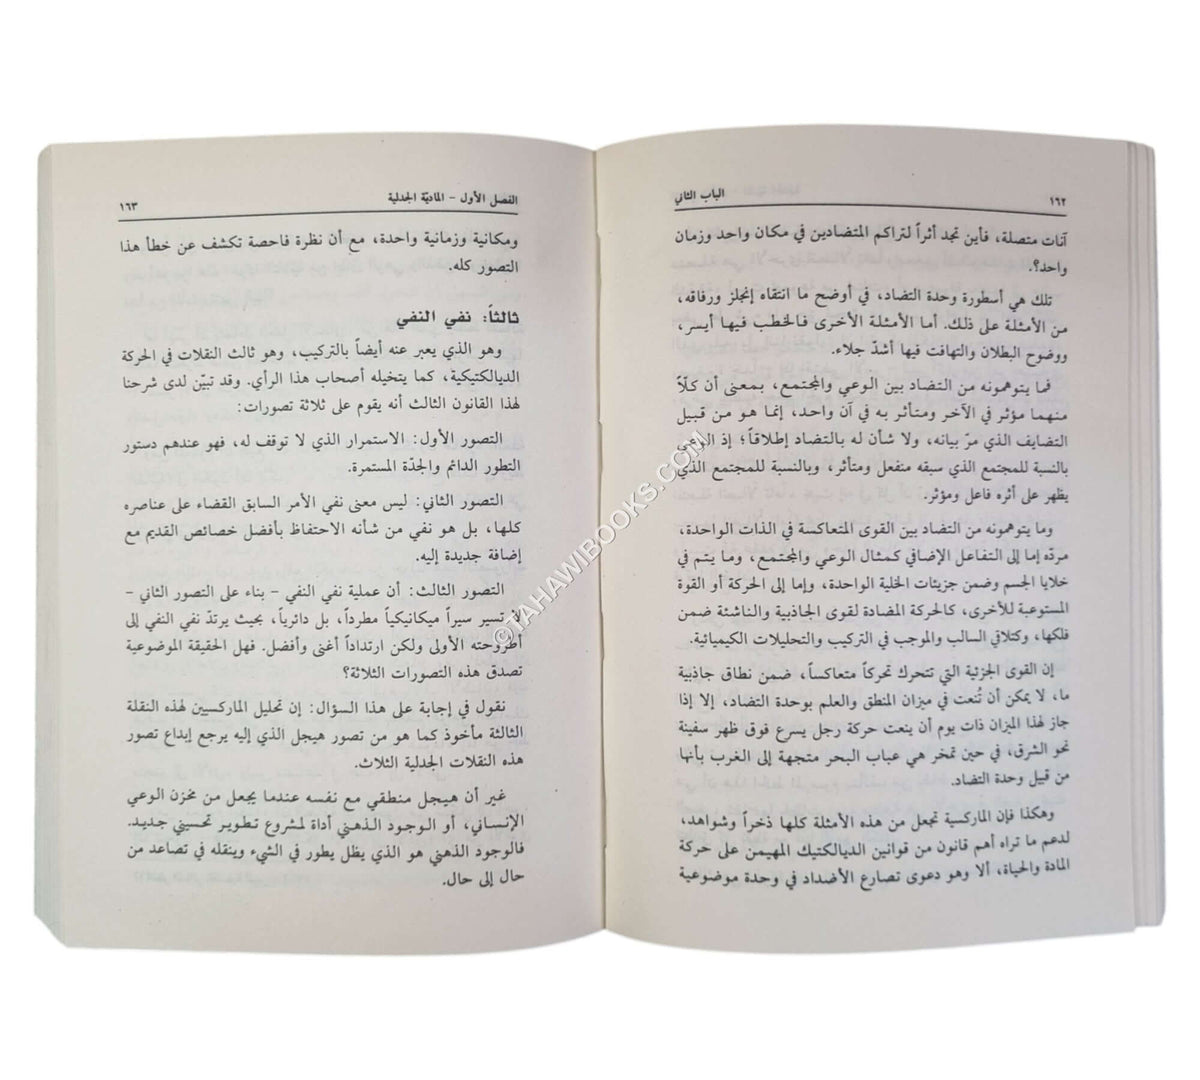 ١٦٢
الباب الثاني
آنات متصلة، فأين تجد أثراً لتراكم المتضادين في مكان واحد وزمان
واحد؟.
تلك هي أسطورة وحدة التضاد، في أوضح ما انتقاه إنجلز ورفاقه،
من الأمثلة على ذلك. أما الأمثلة الأخرى فالخطب فيها أيسر،
ووضوح البطلان والتهافت فيها أشدّ جلاء.
فما يتوهمونه من التضاد بين الوعي والمجتمع، بمعنى أن كلّاً
منهما مؤثر في الآخر ومتأثر به في آن واحد، إنما هو من قبيل
التضايف الذي مرّ بيانه، ولا شأن له بالتضاد إطلاقاً؛ إذ الوعي
بالنسبة للمجتمع الذي سبقه منفعل ومتأثر، وبالنسبة للمجتمع الذي
يظهر على أثره فاعل ومؤثر.
وما يتوهمونه من التضاد بين القوى المتعاكسة في الذات الواحدة،
مردّه إما إلى التفاعل الإضافي كمثال الوعي والمجتمع، وما يتم في
خلايا الجسم وضمن جزيئات الخلية الواحدة، وإما إلى الحركة أو القوة
المستوعبة للأخرى، كالحركة المضادة لقوى الجاذبية والناشئة ضمن
فلكها، وكتلاقي السالب والموجب في التركيب والتحليلات الكيميائية.
إن القوى الجزئية التي تتحرك تحركاً متعاكساً، ضمن نطاق جاذبية
ما، لا يمكن أن تُنعت في ميزان المنطق والعلم بوحدة التضاد، إلا إذا
جاز لهذا الميزان ذات يوم أن ينعت حركة رجل يسرع فوق ظهر سفينة
نحو الشرق، في حين تمخر هي عباب البحر متجهة إلى الغرب بأنها
من قبيل وحدة التضاد.
وهكذا فإن الماركسية تجعل من هذه الأمثلة كلها ذخراً وشواهد،
لدعم ما تراه أهم قانون من قوانين الديالكتيك المهيمن على حركة
المادة والحياة، ألا وهو دعوى تصارع الأضداد في وحدة موضوعية
الفصل الأول – الماديّة الجدلية
١٦٣
ومكانية وزمانية واحدة، مع أن نظرة فاحصة تكشف عن خطأ هذا
التصور كله.
ثالثاً: نفي النفي
وهو الذي يعبر عنه أيضاً بالتركيب، وهو ثالث النقلات في الحركة
الديالكتيكية، كما يتخيله أصحاب هذا الرأي. وقد تبيّن لدى شرحنا
لهذا القانون الثالث أنه يقوم على ثلاثة تصورات:
التصور الأول: الاستمرار الذي لا توقف له، فهو عندهم دستور
التطور الدائم والجدّة المستمرة.
التصور الثاني: ليس معنى نفي الأمر السابق القضاء على عناصره
كلها، بل هو نفي من شأنه الاحتفاظ بأفضل خصائص القديم مع
إضافة جديدة إليه.
التصور الثالث: أن عملية نفي النفي – بناء على التصور الثاني –
لا تسير سيراً ميكانيكياً مطرداً، بل دائرياً، بحيث يرتدّ نفي النفي إلى
أطروحته الأولى ولكن ارتداداً أغنى وأفضل. فهل الحقيقة الموضوعية
تصدق هذه التصورات الثلاثة؟
نقول في إجابة على هذا السؤال: إن تحليل الماركسيين لهذه النقلة
الثالثة مأخوذ كما هو من تصور هيجل الذي إليه يرجع إبداع تصور
هذه النقلات الجدلية الثلاث.
غير أن هيجل منطقي مع نفسه عندما يجعل من مخزن الوعي
الإنساني، أو الوجود الذهني أداة لمشروع تطوير تحسيني جديد.
فالوجود الذهني هو الذي يظل يطور في الشيء وينقله في تصاعد من
حال إلى حال.
©TAHAWIBOOKS.COM